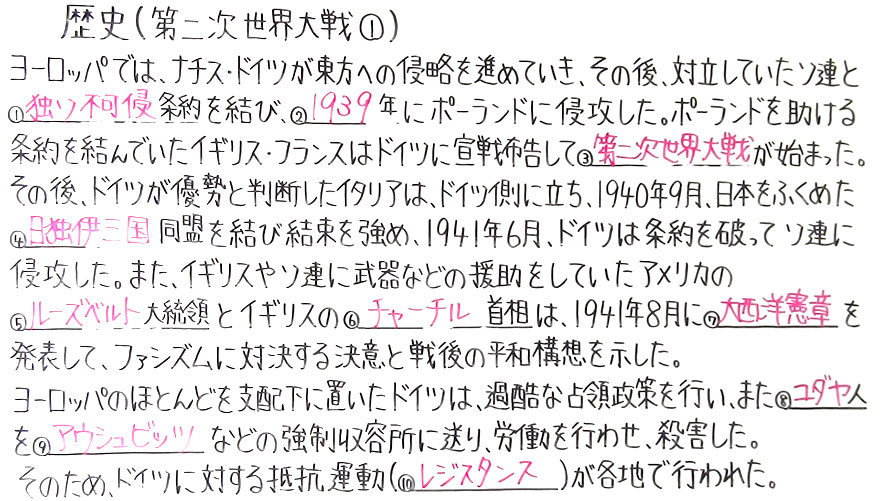 歴史(第二次世界大戦①)
ヨーロッパでは、ナチス・ドイツが東方への侵略を進めていき、その後、対立していたソ連と
①独ソ不可侵条約を結び、②1939年にポーランドに侵攻した。ポーランドを助ける
条約を結んでいたイギリス・フランスはドイツに宣戦布告して③第二次世界大戦が始まった。
その後、ドイツが優勢と判断したイタリアは、ドイツ側に立ち、1940年9月、日本をふくめた
④日独伊三国同盟を結び結束を強め、1941年6月、ドイツは条約を破ってソ連に
侵攻した。また、イギリスやソ連に武器などの援助をしていたアメリカの
⑤ルーズベルト大統領とイギリスの⑥チャーチル首相は、1941年8月に⑦大西洋憲章を
発表して、ファシズムに対決する決意と戦後の平和構想を示した。
ヨーロッパのほとんどを支配下に置いたドイツは、過酷な占領政策を行い、また⑧ユダヤ人
を⑨アウシュビッツなどの強制収容所に送り、労働を行わせ、殺害した。
そのため、ドイツに対する抵抗運動(⑩レジスタンス)が各地で行われた。